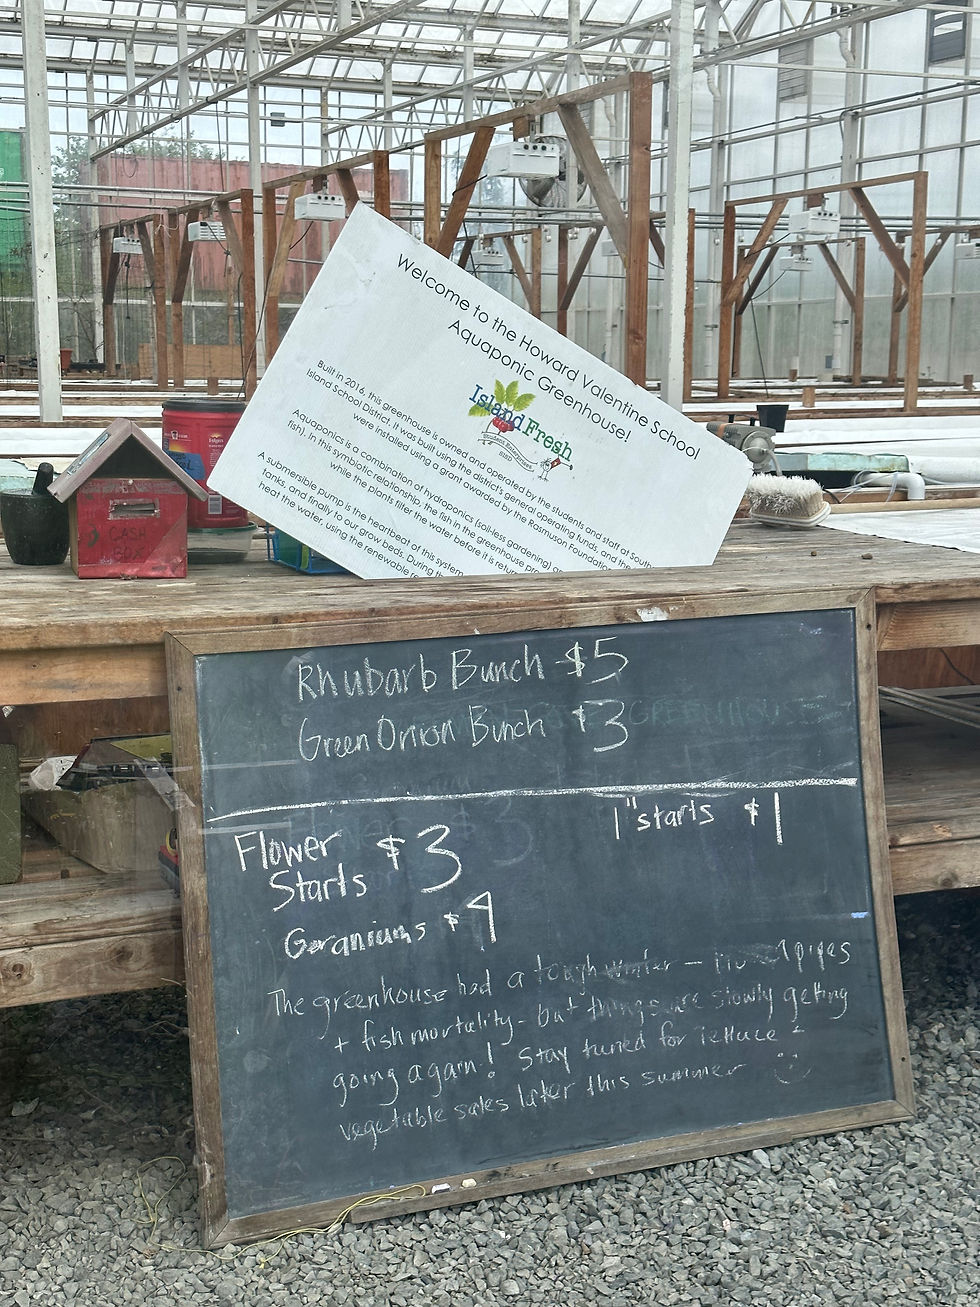 Welcome to the Howard Valentine School
Aquaponic Greenhouse!
Island Fresh
Built in 2016, this greenhouse is owned and operated by the students and staff at South
Island School District. It was built using the district's general operating funds, and the
were installed using a grant awarded by the Rasmuson Foundation
Aquaponics is a combination of hydroponics (soil-less gardening)
fish). In this symbiotic relationship, the fish in the greenhouse
while the plants filter the water before it is
A submersible pump is the heartbeat of this system
tanks, and finally to our grow beds. During the
heat the water, using the renewable
CASH
BOX
Rhubarb Bunch $5
Green Onion Bunch $3
1" starts $1
Flower $3
Starts
Geraniums $4
The greenhouse had a tough winter - pipes
+ fish mortality - but things are slowly getting
going again! Stay tuned for lettuce +
vegetable sales later this summer